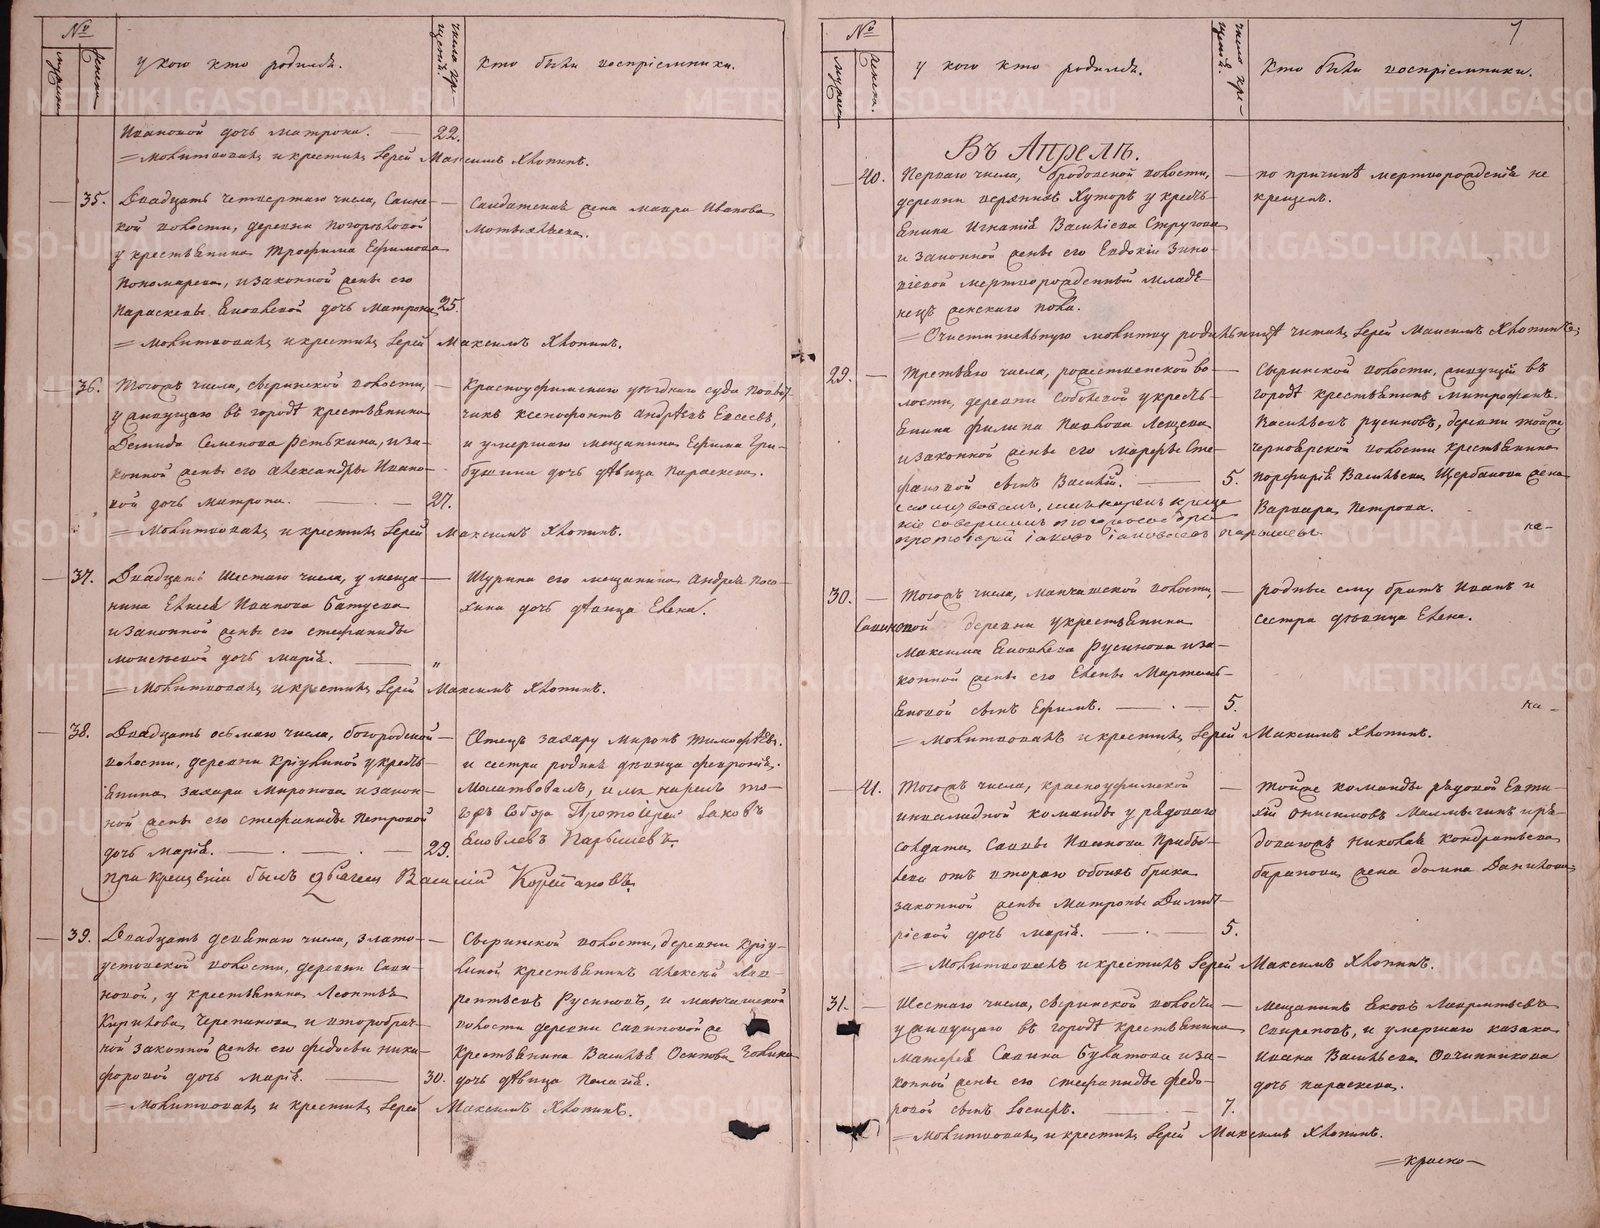 №
мужска
женска
У кого кто родился.
числа кре-
щенія.
Кто были воспріемники.
Ивановой дочь Матрона. — 22.
= Молитвовалъ и крестилъ Іерей Максимъ Хлопинъ.
— 35. Двадцать четвертаго числа, Саин-
ской волости, деревни Погорѣловой
у крестьянина Трофима Ефимова
Пономарева, и законной жены его
Параскевы Яковлевой дочь Матрона 25.
Салдатская жена Мавра Иванова
= Молитвовалъ и крестилъ Іерей Максимъ Хлопинъ.
— 36. Тогожъ числа, Сыринской волости,
у живущаго въ городѣ крестьянина
Демида Семенова Рѣткина, и за-
конной жены его Александры Ивано-
вой дочь Матрона. — 27.
Красноуфимскаго уѣзднаго суда Повыт-
чикъ Ксенофонтъ Андреевъ Евсеевъ,
и умершаго мещанина Ефима Гри-
бушина дочь дѣвица Параскева.
= Молитвовалъ и крестилъ Іерей Максимъ Хлопинъ.
— 37. Двадцать шестаго числа, у меща-
нина Елисея Иванова Батуева
и законной жены его Стефаниды
Моисеевой дочь Марія. — "
Шурина его мещанина Андрея Пого-
хина дочь дѣвица Елена.
= Молитвовалъ и крестилъ Іерей Максимъ Хлопинъ.
— 38. Двадцать осьмаго числа, Богородской
волости, деревни Крюлиной у кресть-
янина Захара Миронова и закон-
ной жены его Стефаниды Петровой
дочь Марія. — 29.
Отецъ Захару Миронъ Тимофѣевъ.
и сестра родная дѣвица Февронія.
Молитвовалъ, и имя нарекъ то-
гожъ Собора Протоіерей Іаковъ
Яковлевъ Парышевъ
при крещеніи былъ Дьячекъ Василій
— 39. Двадцать девятаго числа, Злато-
устовской волости, деревни Сави-
новой, у крестьянина Леонтья
Кирилова Черепанова и второбрач-
ной законной жены его Федосьи Ники-
форовой дочь Марія. — 30.
Сыринской волости, деревни Крю-
линой крестьянинъ Алексѣй Лав-
рентьевъ Русиновъ, и Манчажской
волости деревни Савиновой же
крестьянина Василья Осипова
дочь дѣвица Пелагія.
= Молитвовалъ и крестилъ Іерей Максимъ Хлопинъ.
7
№
мужска
женска.
У кого кто родился.
числа кре-
щенія.
Кто были воспріемники.
Въ Апрелѣ.
— 40. Перваго числа, Бродовской волости,
деревни Верхнихъ Хуторъ у кресть-
янина Игнатія Васильева Стругова
и законной жены его Евдокіи Зино-
віевой мертворожденный младе-
нецъ женскаго пола.
— по причинѣ мертворожденія не
крещенъ.
= Очистительную молитву родильницѣ читалъ Іерей Максимъ Хлопинъ.
29. — Третьяго числа, Рожественской во-
лости, деревни Соболевой у кресть-
янина Филипа Павлова Лещева
и законной жены его Марѳы Сте-
фановой сынъ Василій. — 5.
Сыринской волости, живущій въ
городѣ крестьянинъ Митрофанъ
Васильевъ Русиновъ, деревни тойже
Черноярской волости крестьянина
Порфирія Васильева Щербакова жена
Варвара Петрова.
Молитвовалъ, имя нарекъ и креще-
ніе совершилъ тогожъ собора
протоіерей Іаковъ Іаковлевъ Парышевъ
30. — Тогожъ числа, Манчажской волости,
Савиновой деревни у крестьянина
Максима Яковлева Русинова и за-
конной жены его Елены Мартемь-
яновой сынъ Ефимъ. — 5.
— родные ему братъ Иванъ и
сестра дѣвица Елена.
= Молитвовалъ и крестилъ Іерей Максимъ Хлопинъ.
— 41. Тогожъ числа, Красноуфимской
инвалидной команды у рядоваго
солдата Саввы Иванова Прибы-
лева отъ втораго обоихъ брака
законной жены Матроны Димит-
ріевой дочь Марія. — 5.
— тойже команды рядовой Евти-
хій Онисимовъ Малмыгинъ и ря-
доваго Николая Кондратьева
Баранова жена Домна Данилова
= Молитвовалъ и крестилъ Іерей Максимъ Хлопинъ.
31. — Шестаго числа, Сыринской волости
у живущаго въ городѣ крестьянина
Матфея Савина Булатова и за-
конной жены его Стефаниды Федо-
ровой сынъ Іосифъ. — 7.
— Мещанинъ Яковъ Лаврентьевъ
Свиреповъ, и умершаго казака
Ивана Васильева Овчинникова
дочь Параскева.
= Молитвовалъ и крестилъ Іерей Максимъ Хлопинъ.
= красно —